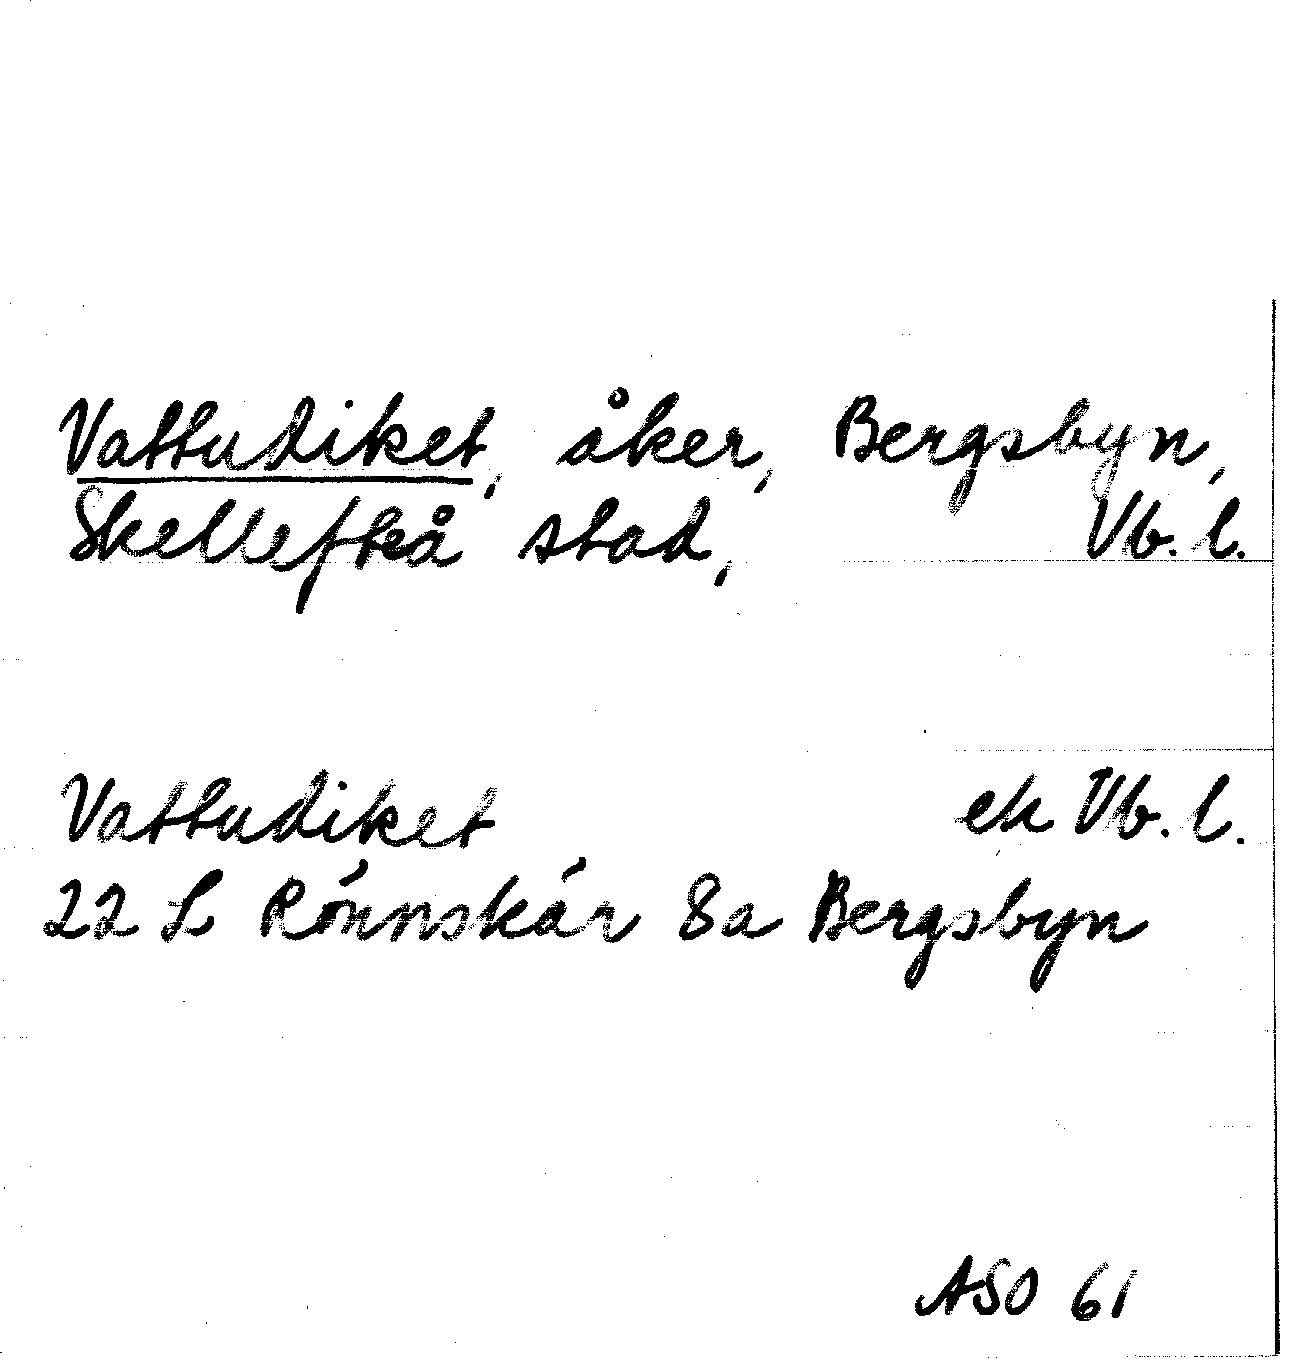 Vattudiket, åker, Bergsbyn,
Skellefteå stad, Vb. l.
Vattudiket ek Vb. l.
22 L Rönnskär 8a Bergsbyn
ASO 61